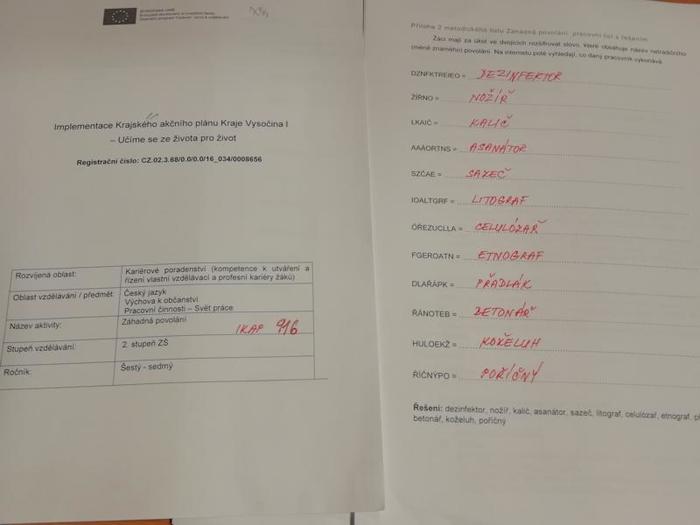 Implementace Krajského akčního plánu Kraje Vysočina I
– Učíme se ze života pro život
Registrační číslo: CZ.02.3.68/0.0/0.0/16_034/0008656
Rozvíjená oblast: Kariérové poradenství (kompetence k utváření a
řízení vlastní vzdělávací a profesní kariéry žáků)
Oblast vzdělávání / předmět: Český jazyk
Výchova k občanství
Pracovní činnosti – Svět práce
Název aktivity: Záhadná povolání
IKAP 916
Stupeň vzdělávání: 2. stupeň ZŠ
Ročník: Šestý - sedmý
Příloha 2 metodického listu Záhadná povolání, pracovní list s řešením
Žáci mají za úkol ve dvojicích rozšifrovat slovo, které obsahuje název netradičního
(méně známého) povolání. Na internetu poté vyhledají, co daný pracovník vykonává.
DZNFKTREIEO = DEZINFEKTOR
ŽÍRNO = NOŽÍŘ
LKAIČ = KALIČ
AAAORTNS = ASANÁTOR
SZČAE = SAZEČ
IOALTGRF = LITOGRAF
OŘEZUCLLA = CELULÓZAŘ
FGEROATN = ETNOGRAF
DLAŘÁPK = PŘADLÁK
RÁNOTEB = BETONÁŘ
HULOEKŽ = KOŽELUH
ŘÍČNÝPO = POŘÍČNÝ
Řešení: dezinfektor, nožíř, kalič, asanátor, sazeč, litograf, celulózař, etnograf,
betonář, koželuh, poříčný